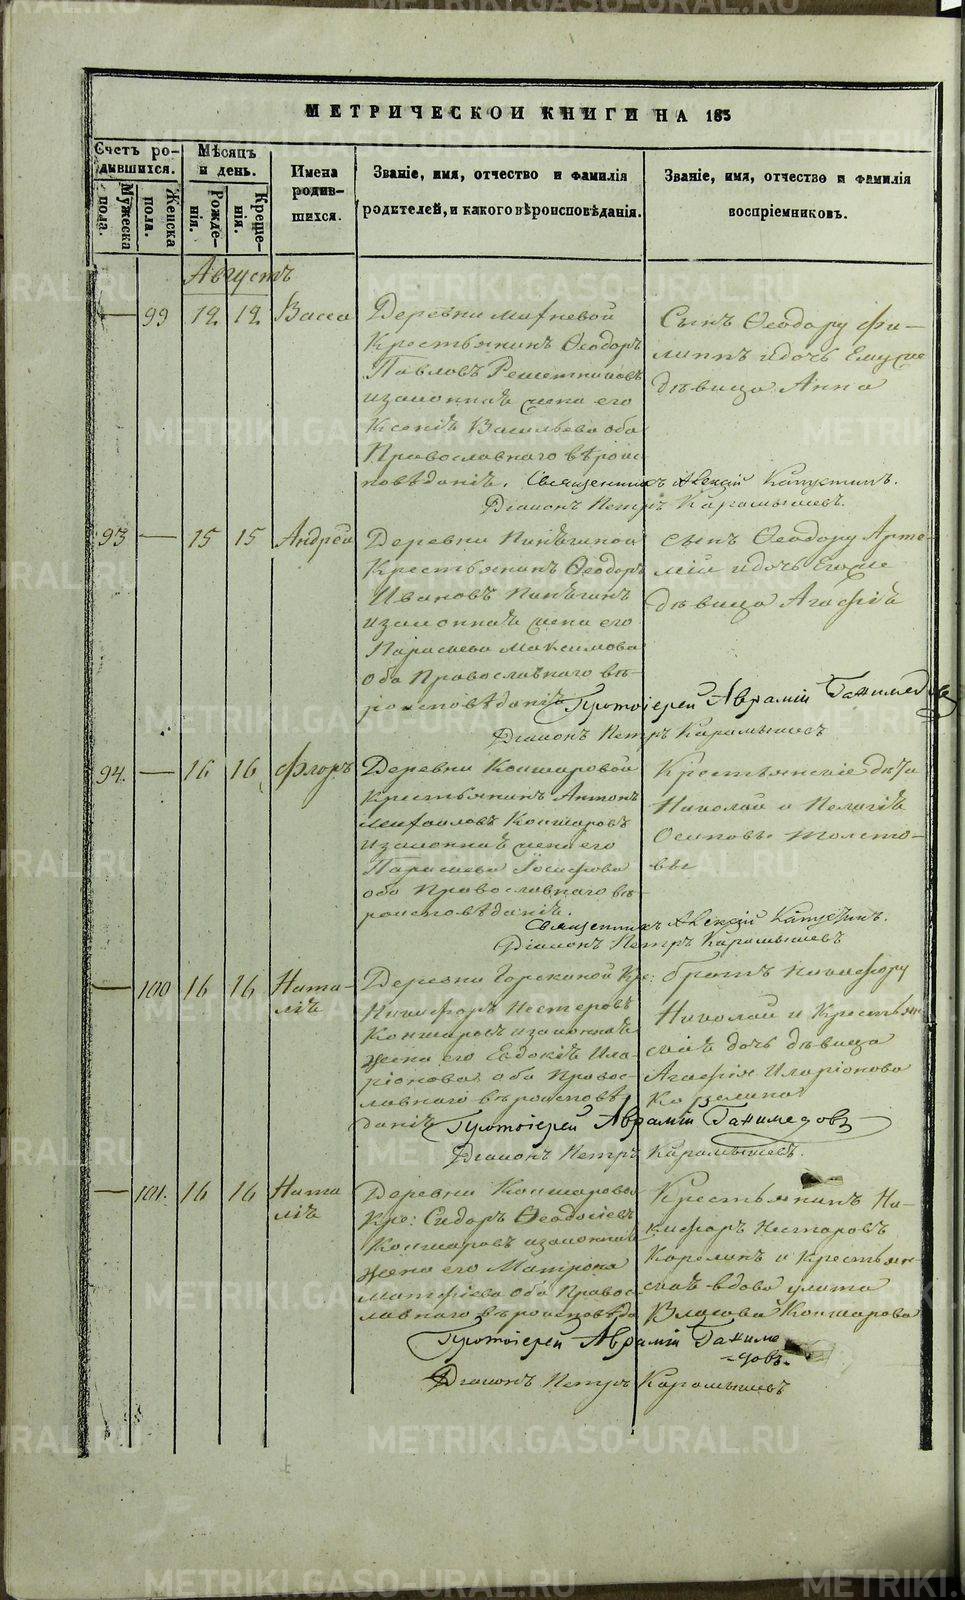 МЕТРИЧЕСКОИ КНИГИ НА 185
Счетъ ро-
дившихся.
Мѣсяцъ
и день.
Имена
родив-
шихся.
Званіе, имя, отчество и фамилія
родителей, и какого вѣроисповѣданія.
Званіе, имя, отчество и фамилія
воспріемниковъ.
Мужеска
пола.
Женска
пола.
Рожде-
нія.
Креще-
нія.
Августъ
99 12. 12. Васса
Деревни
Крестьянинъ Ѳеодоръ
Павловъ Решетниковъ
изаконная жена его
Ксенія Васильева оба
Православнаго вѣроис
повѣданія. Священникъ Алексій Капустинъ.
Діаконъ Петръ Карамышевъ.
Сынъ Ѳеодору Фи-
липпъ идочь
дѣвица Анна
93 — 15 15 Андрей
Деревни
Крестьянинъ Ѳеодоръ
Ивановъ
изаконная жена его
Параскева Максимова
оба Православнаго вѣ-
роисповѣданія Протоіерей Аврамій Ганимедовъ
Діаконъ Петръ Карамышевъ
сынъ Ѳеодору Арте-
мій идочь
дѣвица Агафія
94. — 16 16 Флоръ
Деревни Кокшаровой
Крестьянинъ Антонъ
Михаиловъ Кокшаровъ
изаконная жена его
Параскева Іосифова
оба Православнаго вѣ-
роисповѣданія.
Священникъ Алексій Капустинъ.
Діаконъ Петръ Карамышевъ
Крестьянскіе дѣти
Николай и Пелагія
Осиповы Толсто-
вы
— 100 16 16 Ната-
лія
Деревни Горскиной Кре:
Никифоръ Нестеровъ
изаконная
жена его Евдокія Ила-
ріонова оба Правос-
лавнаго вѣроисповѣ
данія Протоіерей Аврамій Ганимедовъ
Діаконъ Петръ Карамышевъ.
братъ Никифору
Николай и Крестьян-
ская дочь дѣвица
Агафія Иларіонова
Карелина
— 101. 16 16 Ната
лія
Деревни Кокшарова
Кре: Сидоръ Ѳеодосіевъ
Кокшаровъ изаконная
жена его Матрона
Матфіева оба Правос-
лавнаго вѣроисповѣда
Протоіерей Аврамій Ганиме
-довъ-
Діаконъ Петръ Карамышевъ
Крестьянинъ Ни-
кифоръ Нестеровъ
Карелинъ и Крестьян-
ская вдова улита
Власова Кокшарова
METRIKI.GASO-URAL.RU